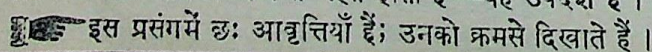 इस प्रसंगमें छः आवृत्तियाँ हैं; उनको क्रमसे दिखाते हैं ।